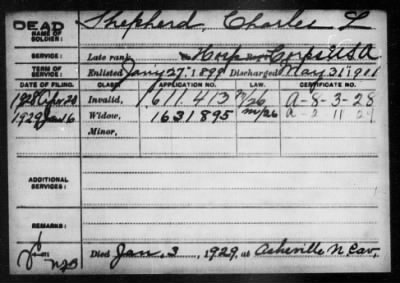 DEAD Shepherd, Charles L
NAME OF SOLDIER:
SERVICE: Late rank, Hosp Corps USA
TERM OF SERVICE: Enlisted Jan'y 27, 1899 Discharged May 31, 1901
DATE OF FILING. CLASS. APPLICATION NO. LAW. CERTIFICATE NO.
1928 Apr 20 Invalid, 1611.413 m/26 A-8-3-28
1929 Jan 16 Widow, 1631895 m/26 a-2 11 29
Minor,
ADDITIONAL SERVICES:
REMARKS:
Died Jan. 3, 1929, at Asheville N Car,